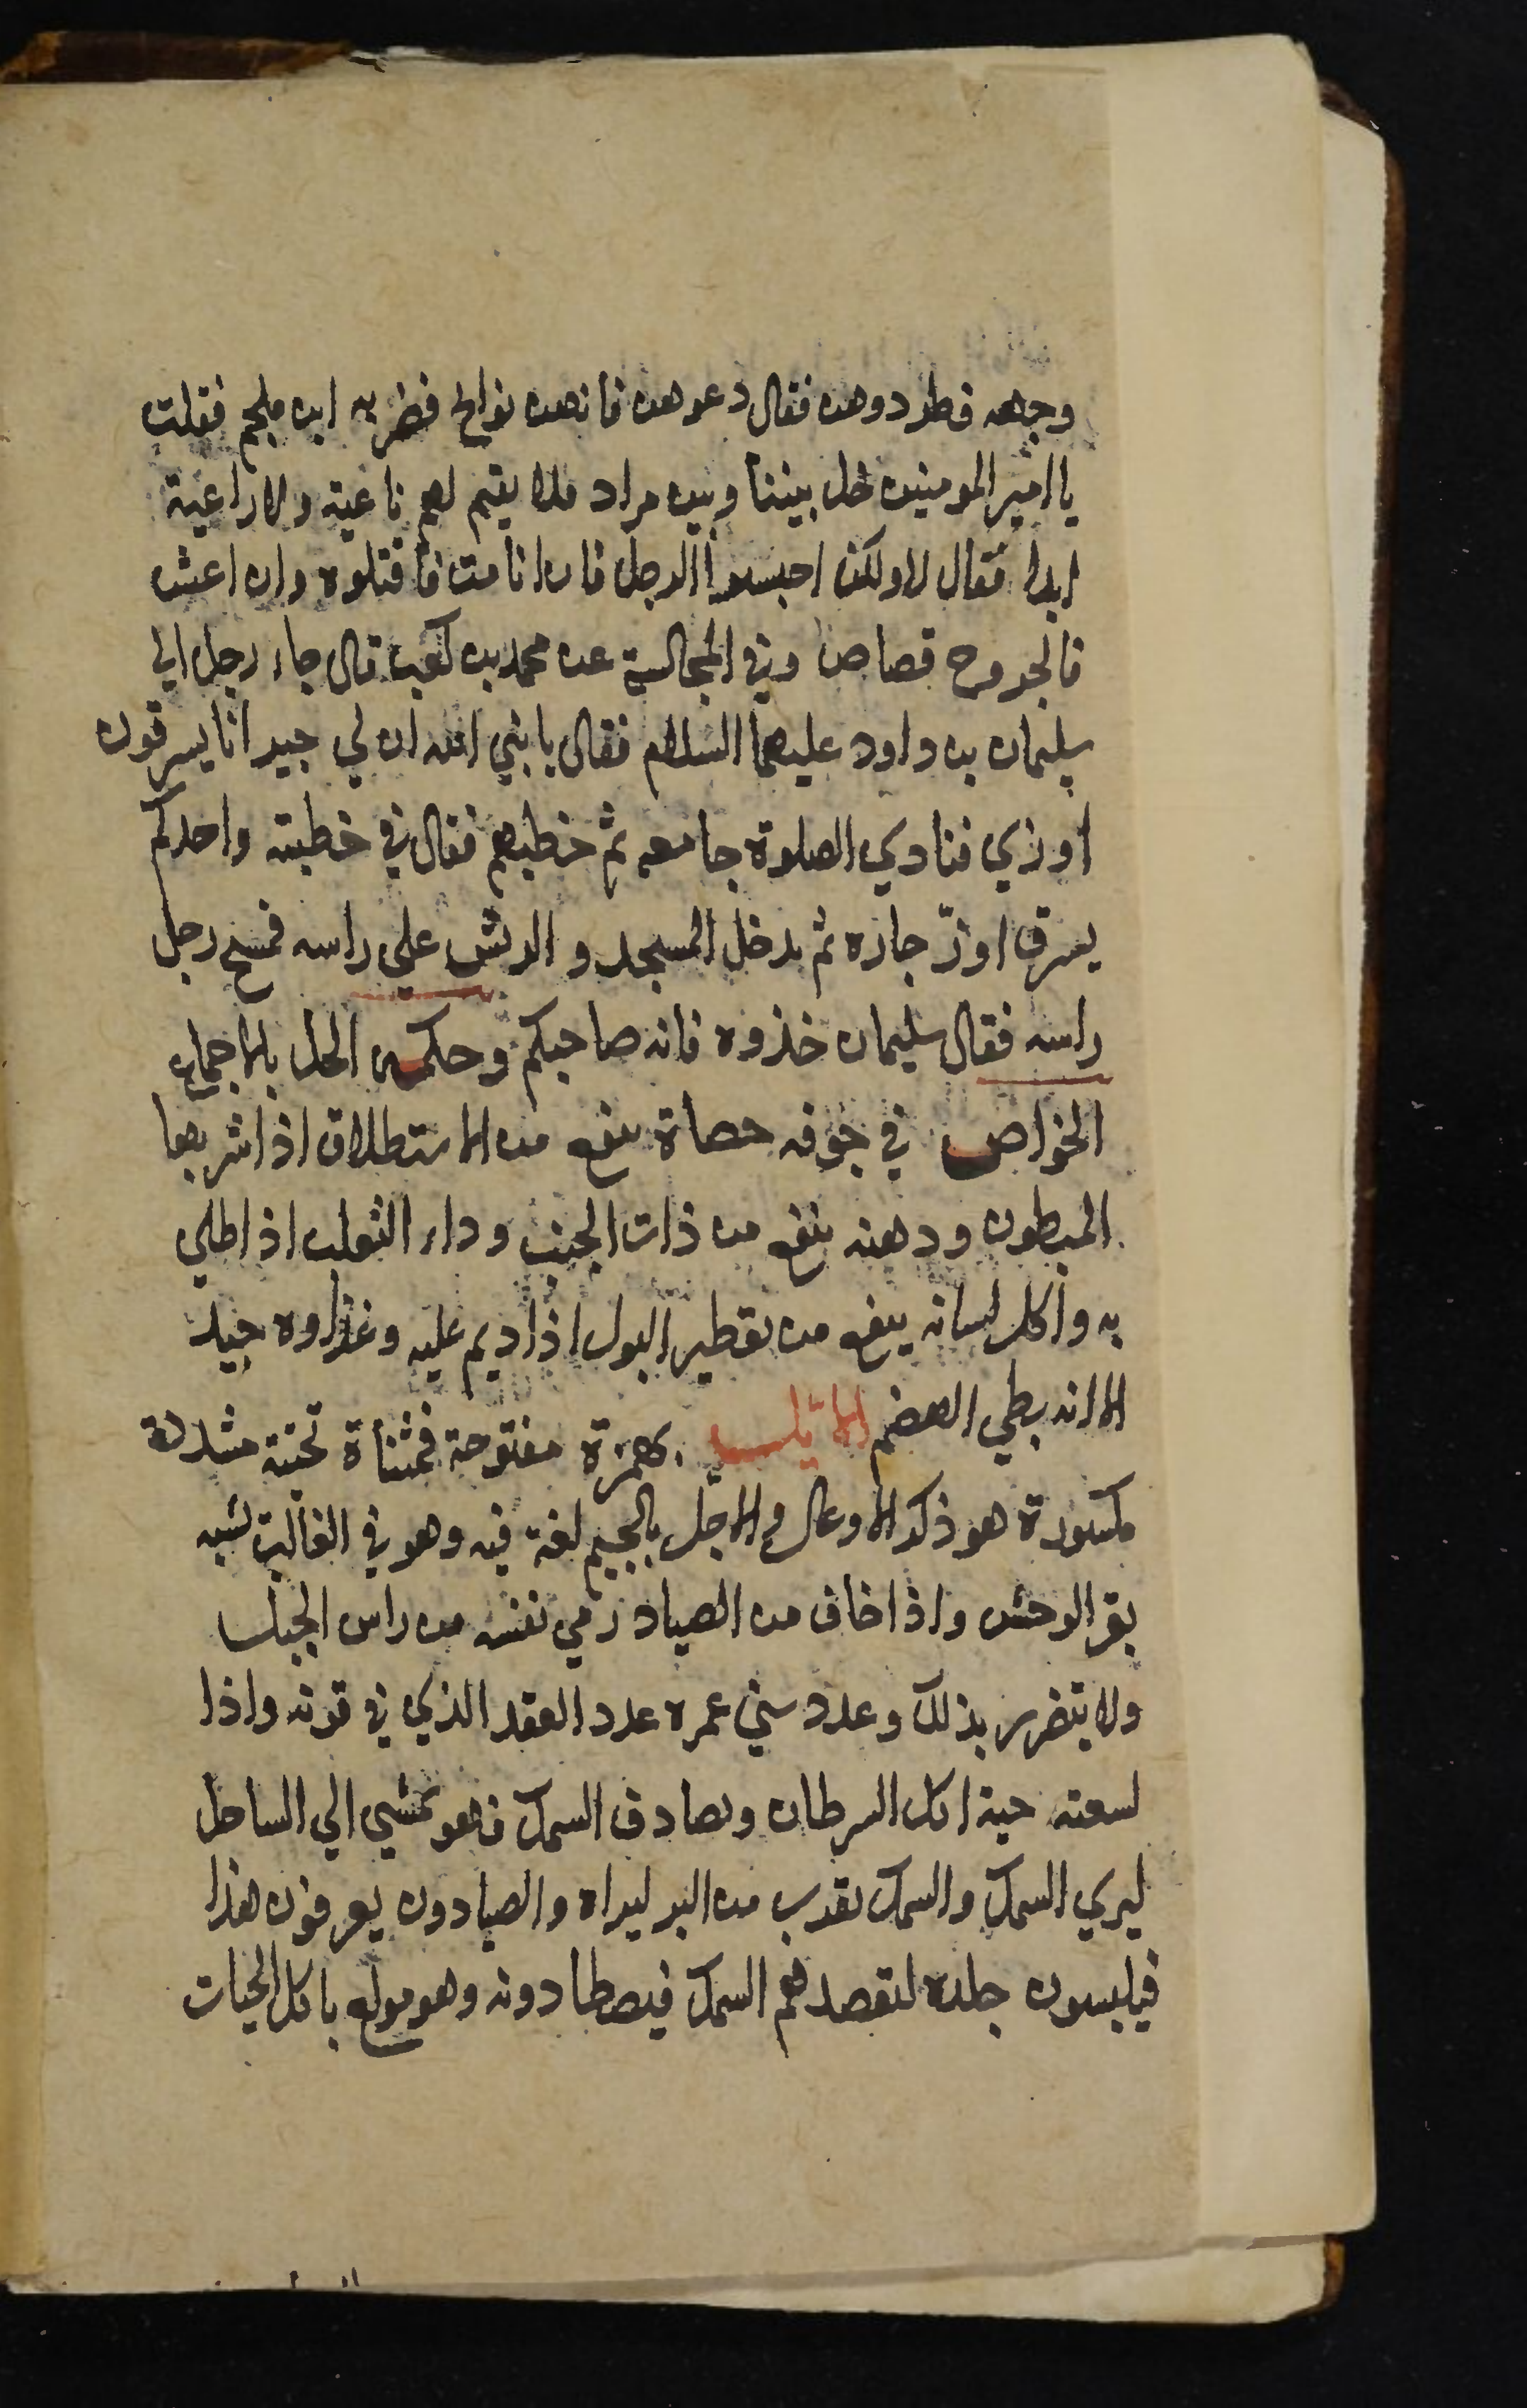 وجهه فطردوهن فقال دعوهن فانهن نوايح فضربه ابن ملجم فقلت
يا امير المومنين خل بيننا وبين مراد فلا يقيم لهم ثاغية ولا راغية
ابدا فقال لا ولكن احبسوا الرجل فان انا مت فاقتلوه وان اعش
فالجروح قصاص وفي المجالسة عن محمد بن كعب قال جاء رجل الي
سليمان بن داود عليهما السلام فقال يا نبي الله ان لي جيرانا يسرقون
اوزي فنادي الصلوة جامعه ثم خطبهم فقال في خطبته واحدكم
يسرق اوزّ جاره ثم يدخل المسجد والريش علي راسه فمسح رجل
راسه فقال سليمان خذوه فانه صاحبكم وحكمه الحل بالاجماع
الخواص في جوفه حصاة ينفع من الاستطلاق اذا شربها
المبطون ودهنه ينفع من ذات الجنب وداء الثعلب اذا طلي
به واكل لسانه ينفع من تقطير البول اذا ديم عليه وغذاوه جيد
الا انه بطي الهضم الايّل بهمزة مفتوحة فمثناة تحتية مشددة
مكسورة هو ذكر الاوعال والاجّل بالجيم لغة فيه وهو في الغالب يشبه
بقر الوحش واذا خاف من الصياد رمي نفسه من راس الجبل
ولا يتضرر بذلك وعدد سني عمره عدد العقد الذي في قرنه واذا
لسعته حية اكل السرطان ويصادق السمك فهو يمشي الي الساحل
ليري السمك والسمك يقرب من البر ليراه والصيادون يعرفون هذا
فيلبسون جلده ليقصدهم السمك فيصطادونه وهو مولع باكل الحيات